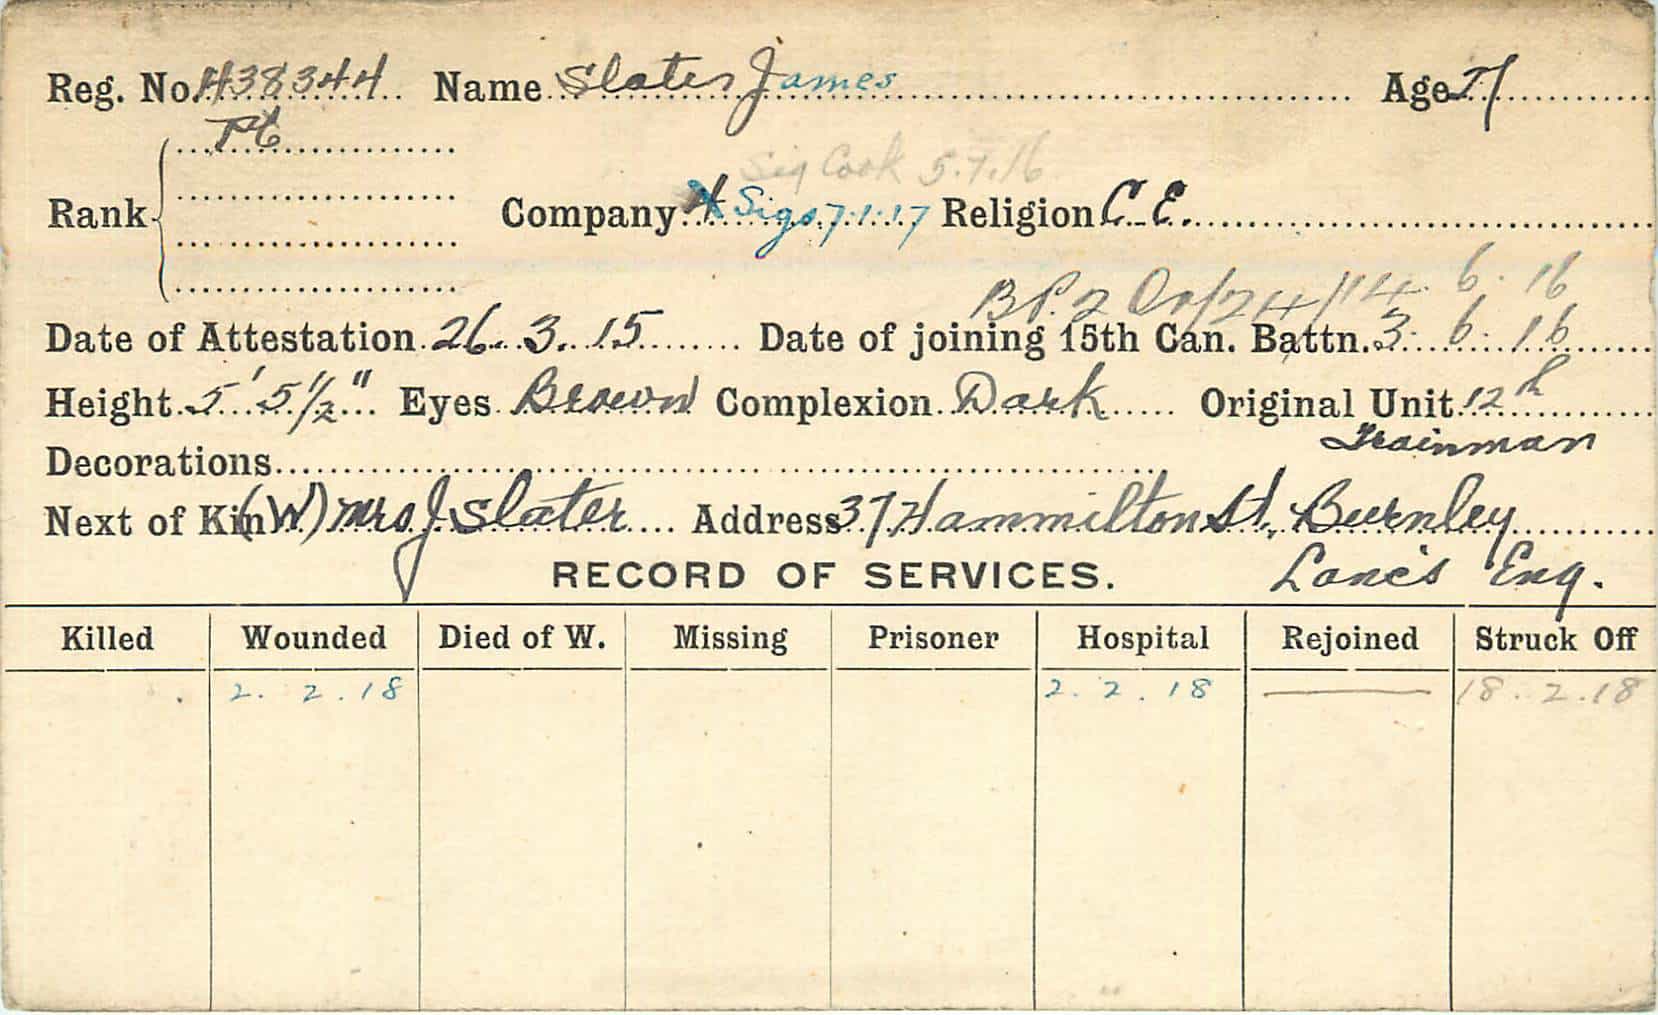 Reg. No. 438344 Name Slater James Age
Pte
Sig Cook 5.7.16
Rank Company 4 Sigs 7.1.17 Religion C.E.
B P.2 Or/24/14.6.16
Date of Attestation 26.3.15 Date of joining 15th Can. Battn. 3.6.16
Height 5' 5 1/2" Eyes Brown Complexion Dark Original Unit 12th
Decorations Trainman
Next of Kin (W) Mrs J. Slater Address 37 Hammilton St, Burnley
RECORD OF SERVICES. Lancs Eng.
Killed Wounded Died of W. Missing Prisoner Hospital Rejoined Struck Off
2.2.18 2.2.18 — 18.2.18